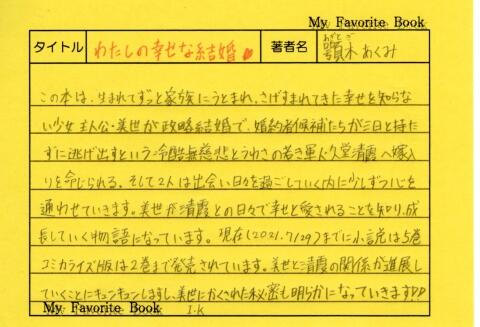 My Favorite Book
タイトル わたしの幸せな結婚 著者名 顎木あくみ
あぎとぎ
この本は、生まれてずっと家族にうとまれ、さげすまれてきた幸せを知らな
い少女主人公・美世が政略結婚で、婚約者候補たちが三日と持た
ずに逃げ出すという冷酷無慈悲とうわさの若き軍人・久堂清霞へ嫁入
りを命じられる。そして2人は出会い日々を過ごしていく内に少しずつ心を
通わせていきます。美世が清霞との日々で幸せと愛されることを知り、成
長していく物語になっています。現在(2021.7/29)までに小説は5巻
コミカライズ版は2巻まで発売されています。美世と清霞の関係が進展し
ていくことにキュンキュンしますし、美世にかくされた秘密も明らかになっていきます♡♡
My Favorite Book I.K